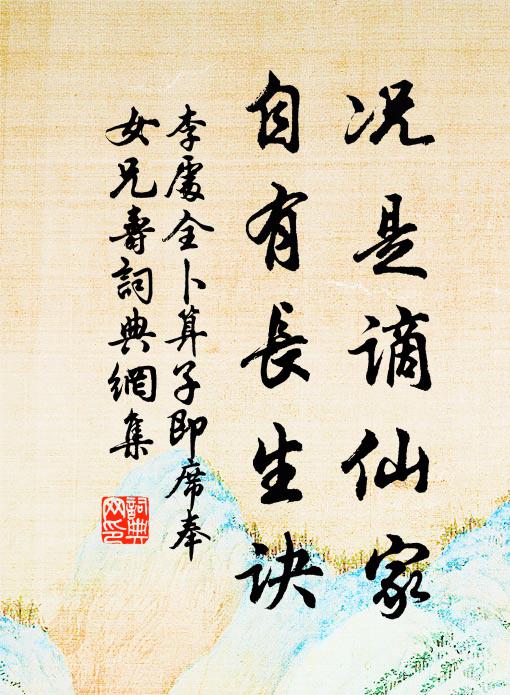 况是谪仙家
自有長生诀
李處全卜算子即席奉
女兄壽詞典網集
詞典網印